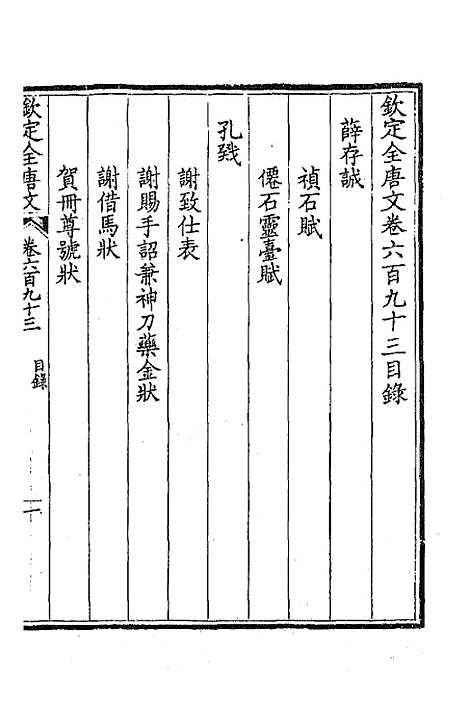 欽定全唐文卷六百九十三目錄
薛存誠
禎石賦
僊石靈臺賦
孔戣
謝致仕表
謝賜手詔兼神刀藥金狀
謝借馬狀
賀冊尊號狀
欽定全唐文 卷六百九十三 目錄 一